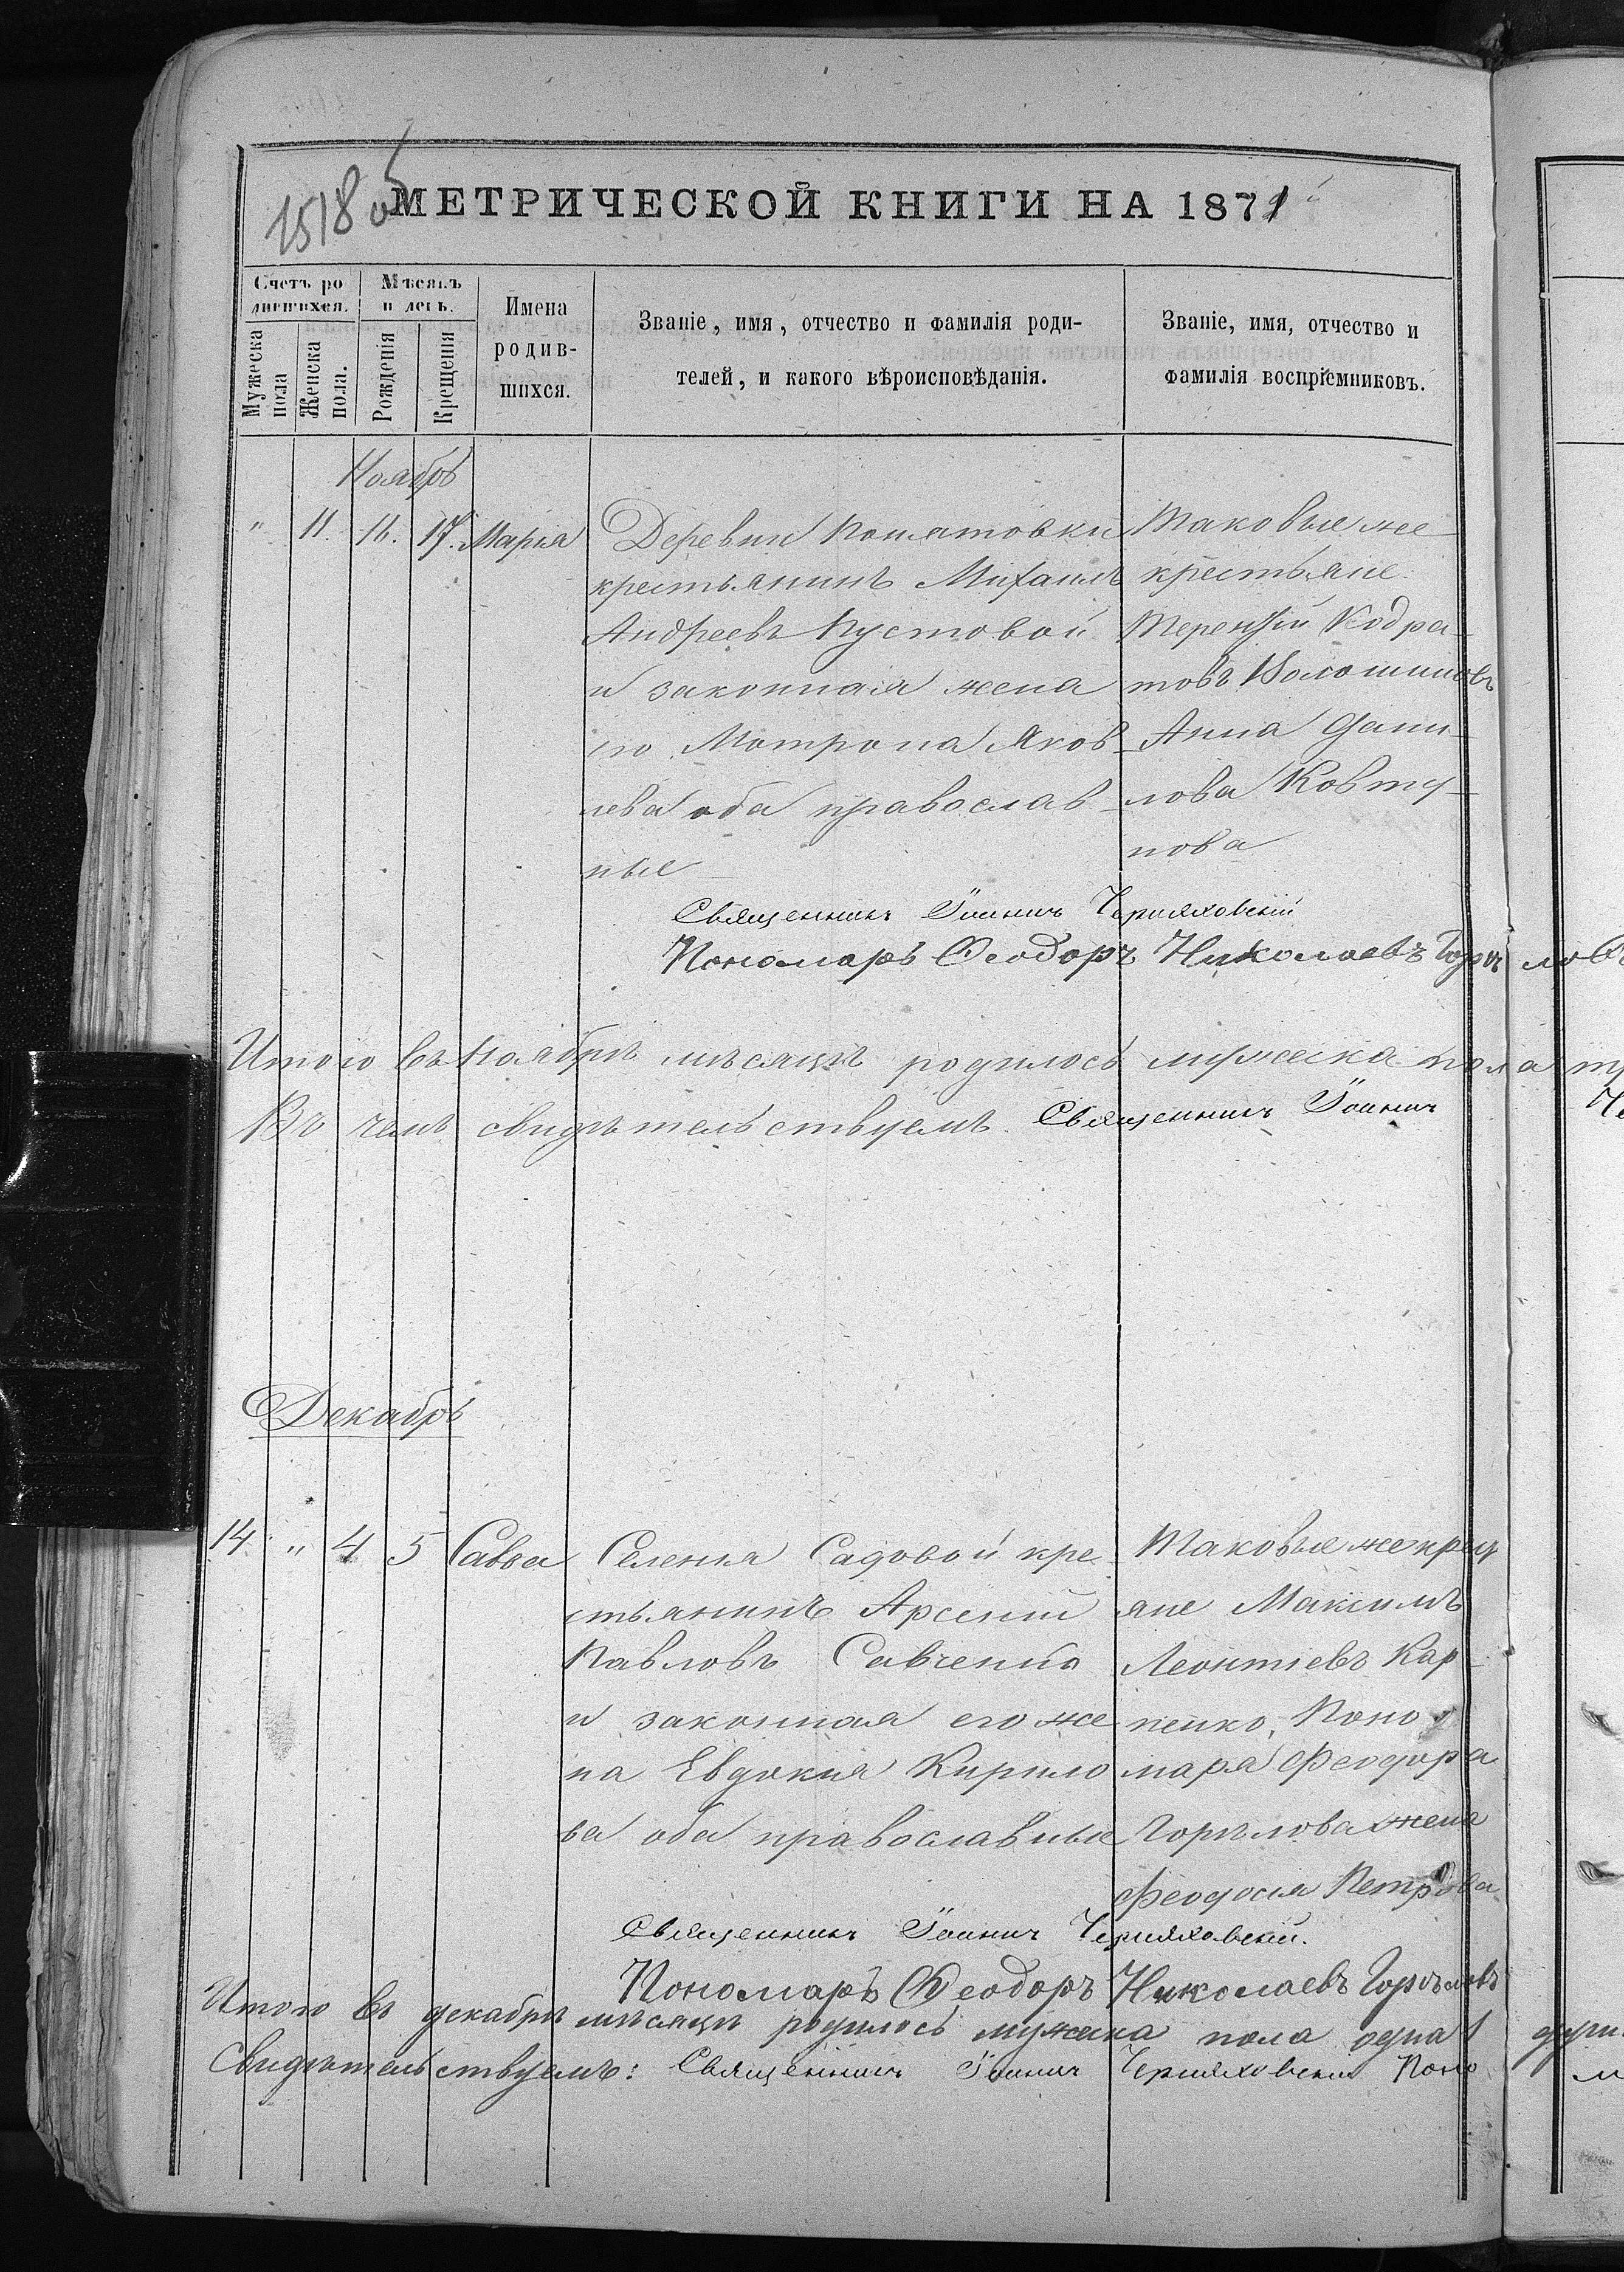 1518 об
МЕТРИЧЕСКОЙ КНИГИ НА 1871
Счетъ ро
дившихся.
Мѣсяцъ
и день.
Мужеска
пола
Женска
пола.
Рожденія
Крещенія
Имена
родив-
шихся.
Званіе, имя, отчество и фамилія роди-
телей, и какого вѣроисповѣданія.
Званіе, имя, отчество и
фамилія воспріемниковъ.
Ноябрь
" 11. 11. 17. Марія
Деревни
крестьянинъ Михаилъ
Андреевъ Пустовой
и законная жена
его Матрона Яков-
лева оба православ-
ные
Таковые же
крестьяне
Терентій Кодра-
товъ Волошиновъ
Анна Дани-
лова Ковту-
нова
Священникъ Іоаннъ Черняховскій
Пономарь Ѳеодоръ Николаевъ Горѣловъ
Итого въ Ноябрѣ мѣсяцѣ родилось мужеска пола
Въ чемъ свидѣтельствуемъ. Священникъ Іоаннъ
Декабрь
14 " 4 5 Савва
Селенія Садовой кре-
стьянинъ Арсеній
Павловъ Савченко
и законная его же
на Евдокия Кирило
ва оба православные
Таковые же крест
яне Максимъ
Леонтіевъ Кар-
пенко, Поно
маря Феодора
Горѣлова жена
Феодосия Петрова
Священникъ Іоаннъ Черняховскій.
Пономарь Ѳеодоръ Николаевъ Горѣловъ
Итого въ декабрѣ мѣсяцѣ родилось мужеска пола одна 1
Свидѣтельствуемъ: Священникъ Іоаннъ Черняховскій Поно